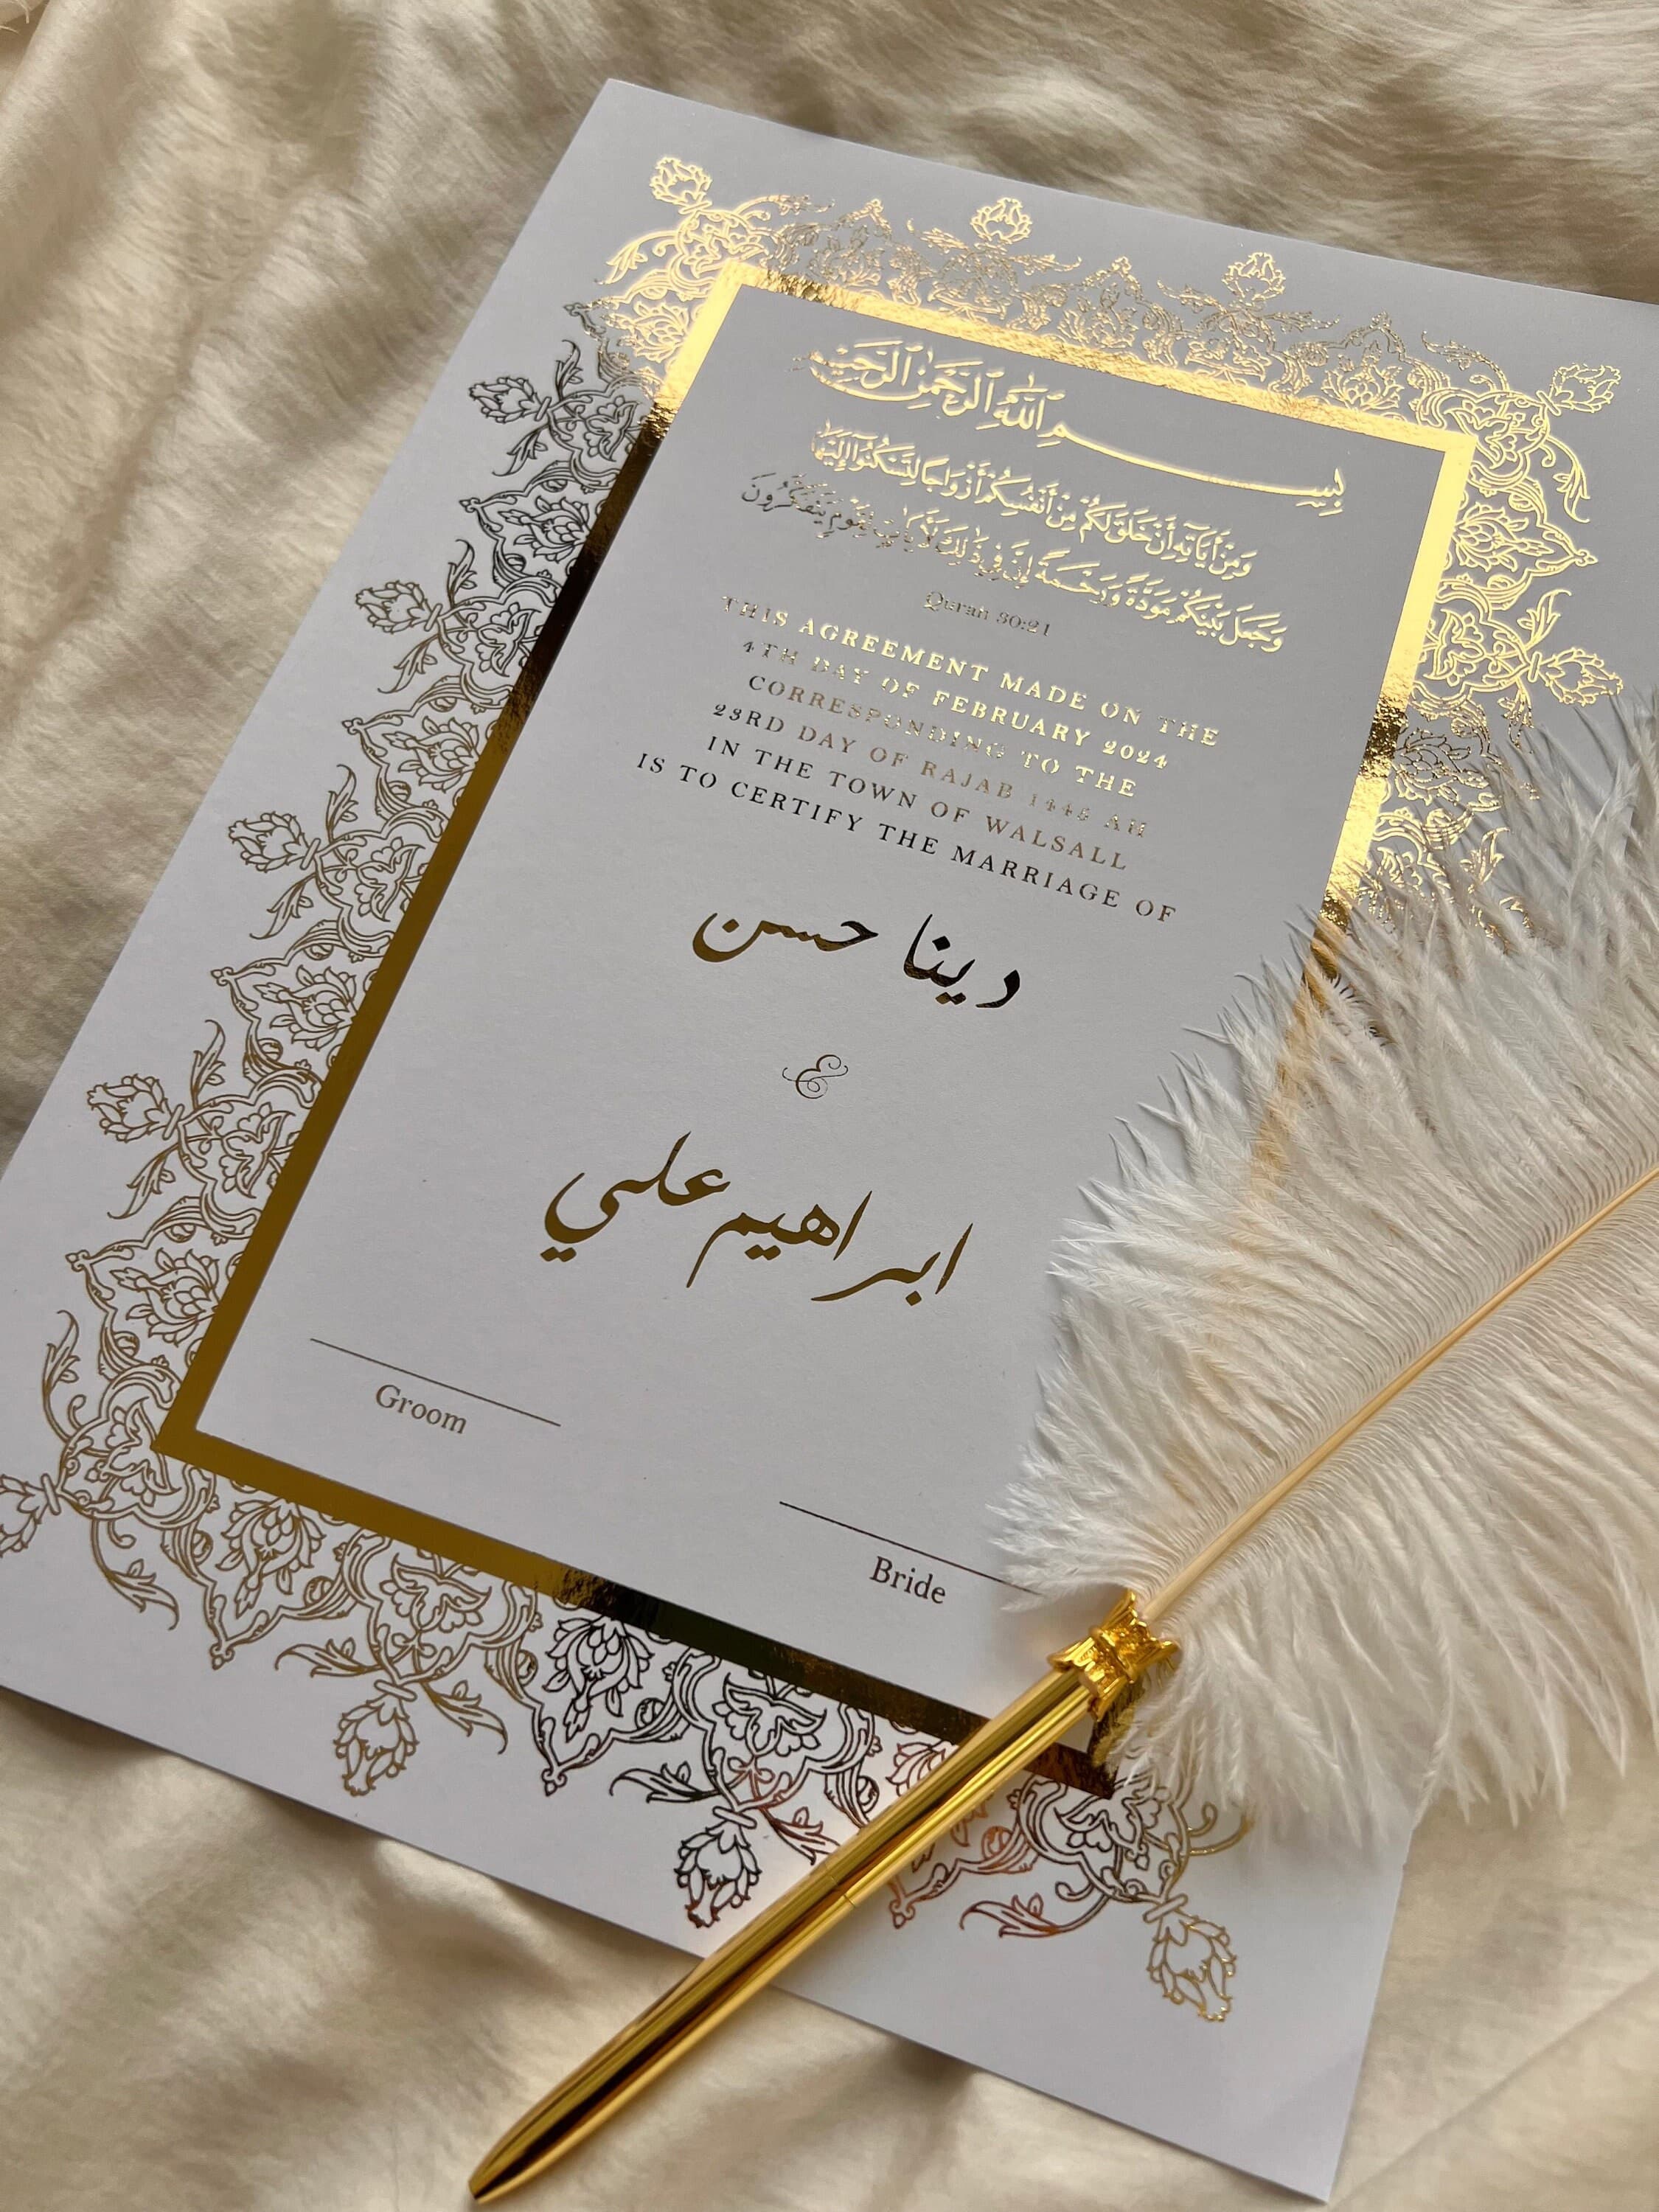 بِسْمِ ٱللَّٰهِ ٱلرَّحْمَٰنِ ٱلرَّحِيمِ
وَمِنْ أَيَاتِهِ أَنْ خَلَقَ لَكُمْ مِنْ أَنْفُسِكُمْ أَزْوَاجًا لِتَسْكُنُوا إِلَيْهَا
وَجَعَلَ بَيْنَكُمْ مَوَدَّةً وَرَحْمَةً إِنَّ فِي ذَٰلِكَ لَآيَاتٍ لِقَوْمٍ يَتَفَكَّرُونَ
Quran 30:21
THIS AGREEMENT MADE ON THE
4TH DAY OF FEBRUARY 2024
CORRESPONDING TO THE
23RD DAY OF RAJAB 1445 AH
IN THE TOWN OF WALSALL
IS TO CERTIFY THE MARRIAGE OF
دينا حسن
&
ابراهيم علي
Groom
Bride